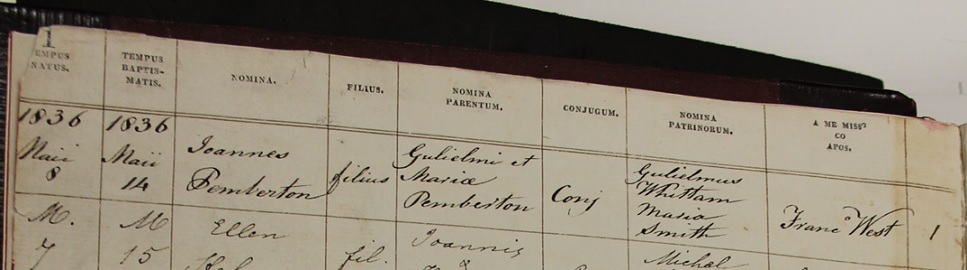 1
TEMPUS NATUS.
TEMPUS BAPTIS-MATIS.
NOMINA.
FILIUS.
NOMINA PARENTUM.
CONJUGUM.
NOMINA PATRINORUM.
A ME MISS° CO APOS.
1836 1836
Maii 8
Maii 14
Joannes Pemberton
filius
Gulielmi et
Mariæ
Pemberton
Conj
Gulielmus
Whittam
Maria
Smith
Franc° West
1
M. 7
M 15
Ellen
fil.
Joannis
Michal